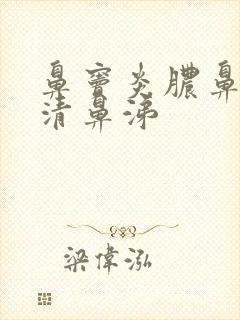 鼻窦炎膿鼻
清鼻涕
梁偉泓